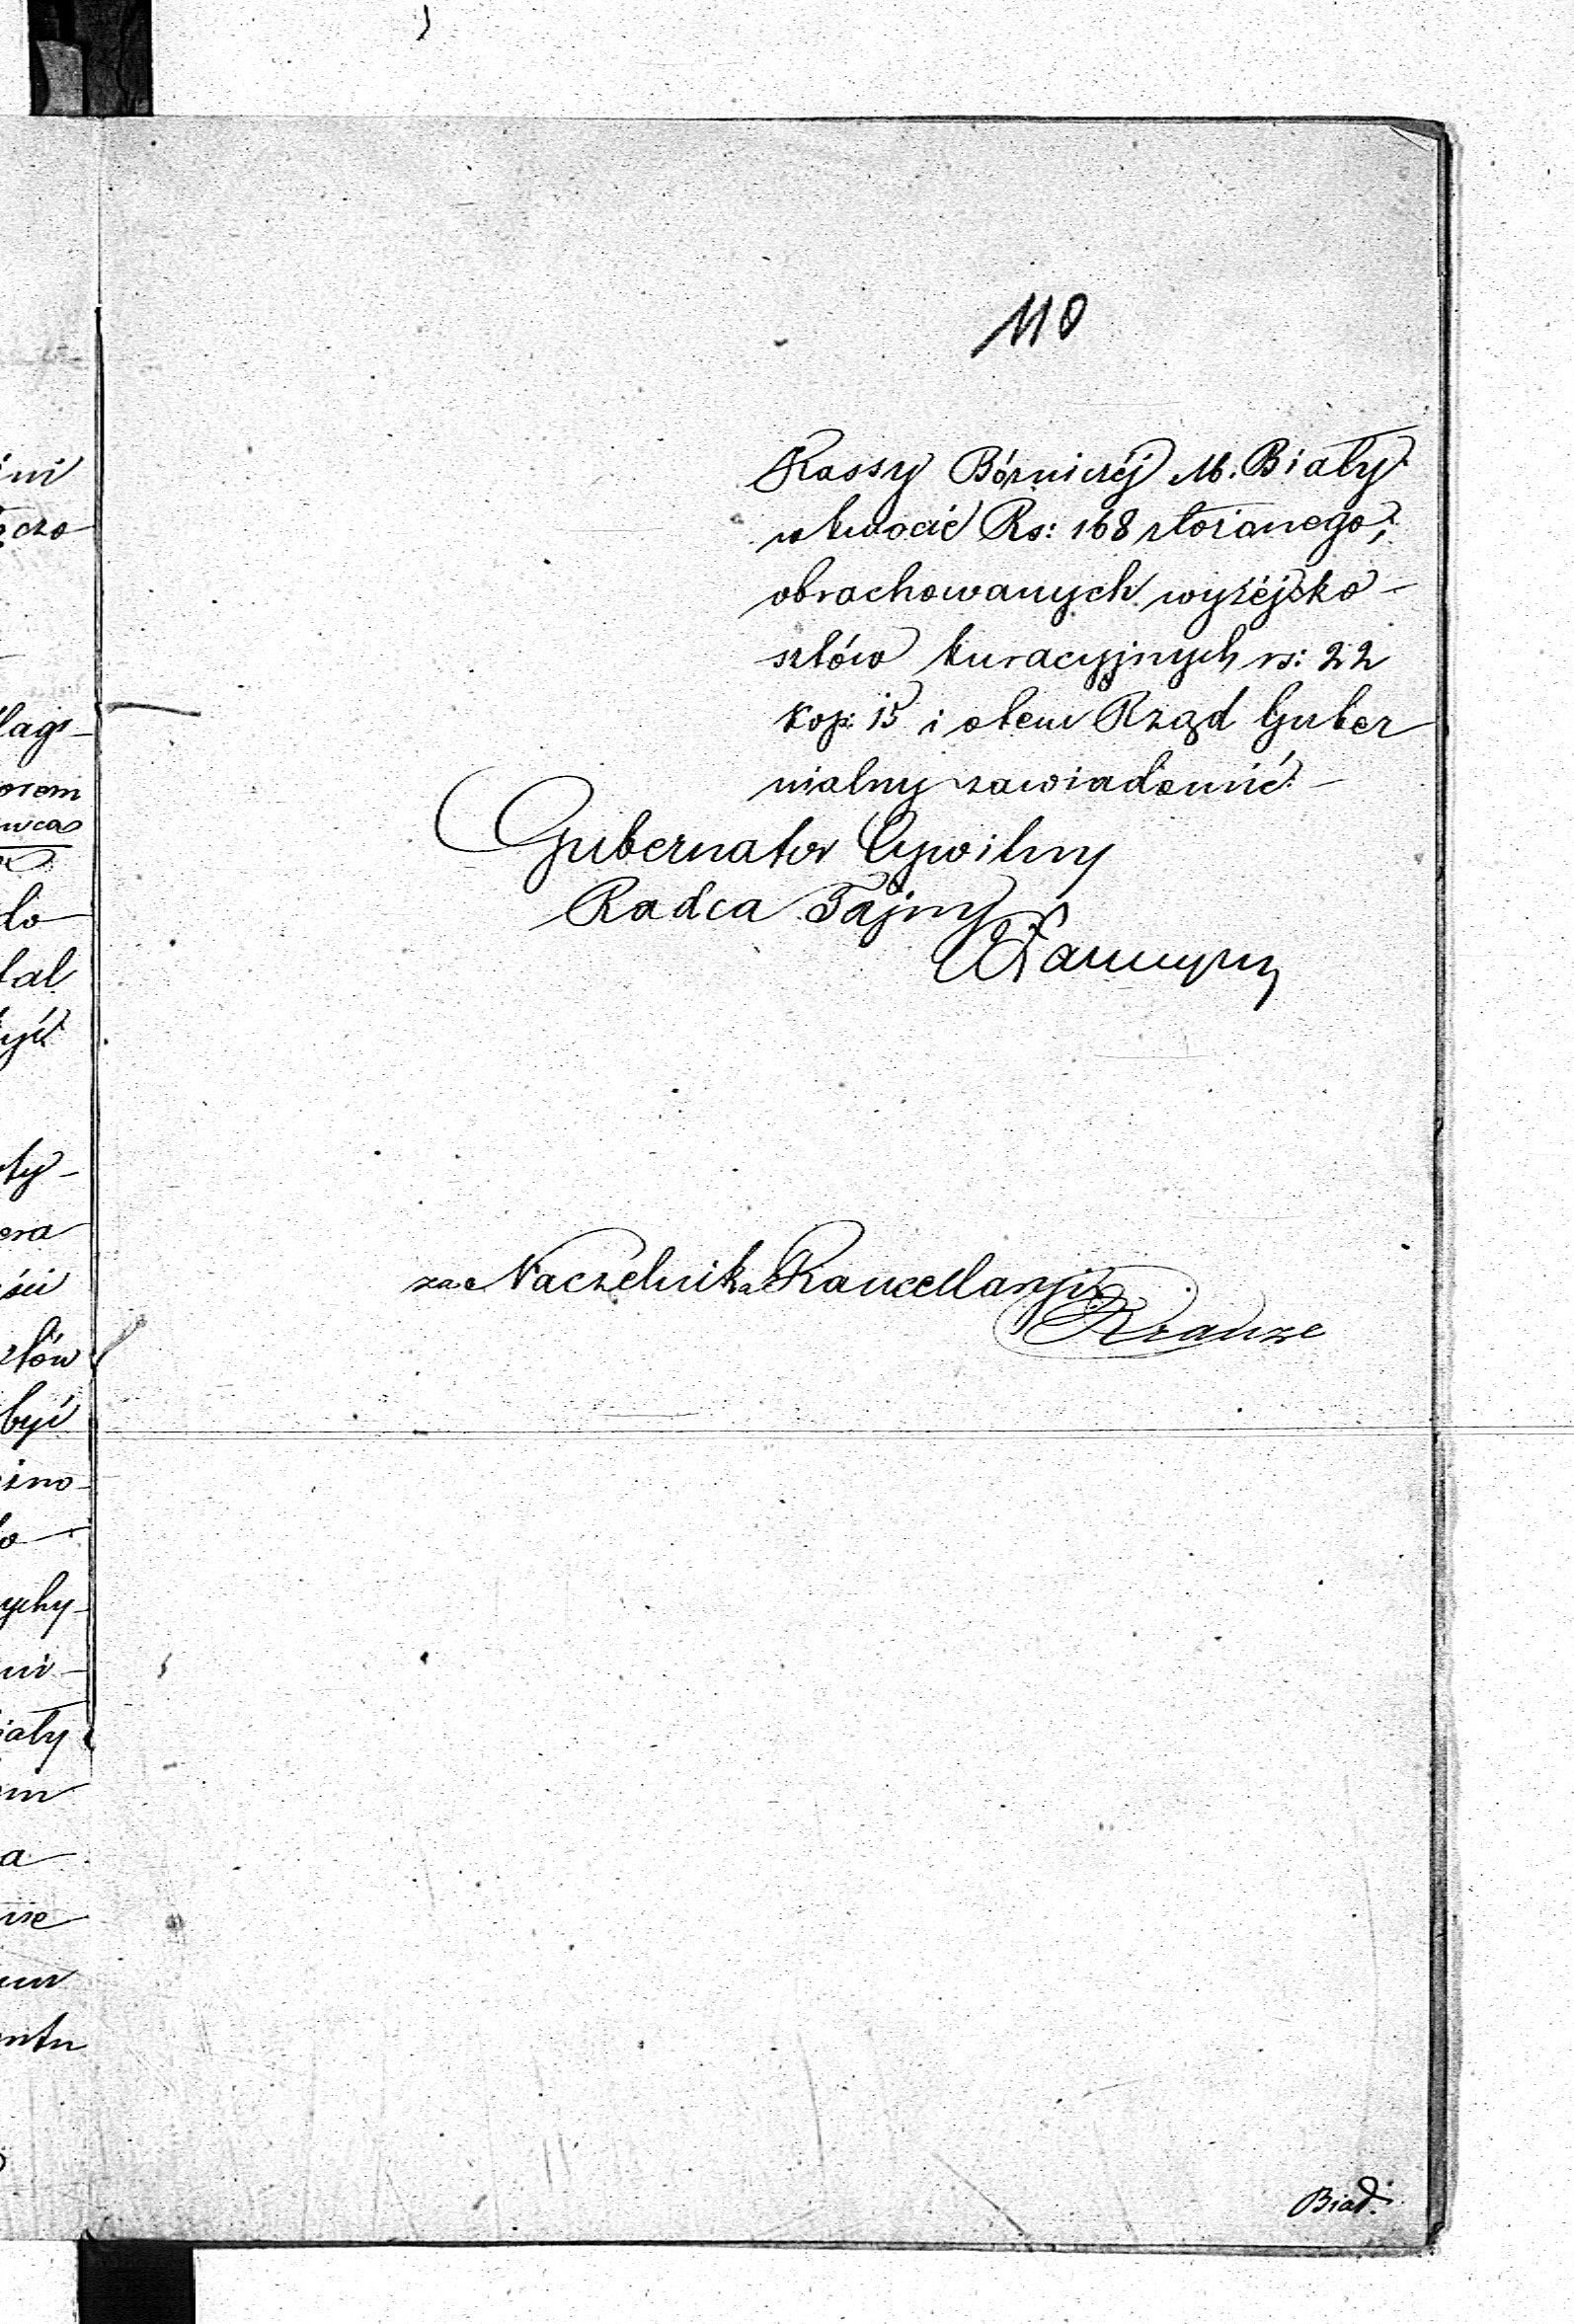 110
Kassy Bóżniczéj M. Biały
w kwocie Rs: 168 złożanego,
obrachowanych wyżéj ko-
sztów kuracyjnych rs: 22
kop: 15 i o tem Rząd Guber
nialny zawiadomić.-
Gubernator Cywilny
Radca Tajny
za Naczelnika Kancellaryi
Krauze
Biad.